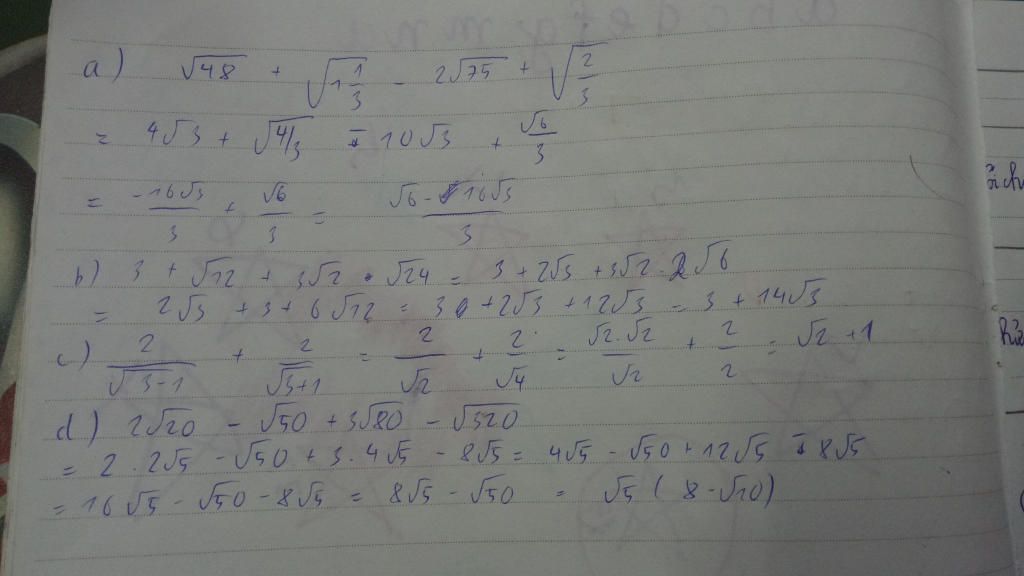 a) √48 + √(1 1/3) - 2√75 + √(2/3)
= 4√3 + √(4/3) - 10√3 + √6/3
= -16√3/3 + √6/3 = (√6 - 16√3)/3
b) 3 + √12 + 3√2 . √24 = 3 + 2√3 + 3√2 . 2√6
= 2√3 + 3 + 6√12 = 3 + 2√3 + 12√3 = 3 + 14√3
c) 2/√(3-1) + 2/√(3+1) = 2/√2 + 2/√4 = √2.√2/√2 + 2/2 = √2 + 1
d) 2√20 - √50 + 3√80 - √320
= 2 . 2√5 - √50 + 3 . 4√5 - 8√5 = 4√5 - √50 + 12√5 - 8√5
= 16√5 - √50 - 8√5 = 8√5 - √50 = √5 ( 8 - √10)